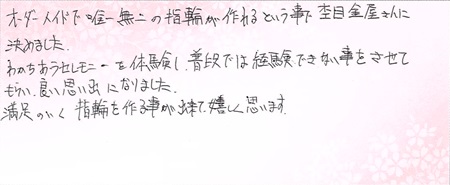 オーダーメイドで唯一無二の指輪が作れるという事で杢目金屋さんに
決めました。
わかちあうセレモニーを体験し、普段では経験できない事をさせて
もらい、良い思い出になりました。
満足のいく指輪を作る事が出来て嬉しく思います。